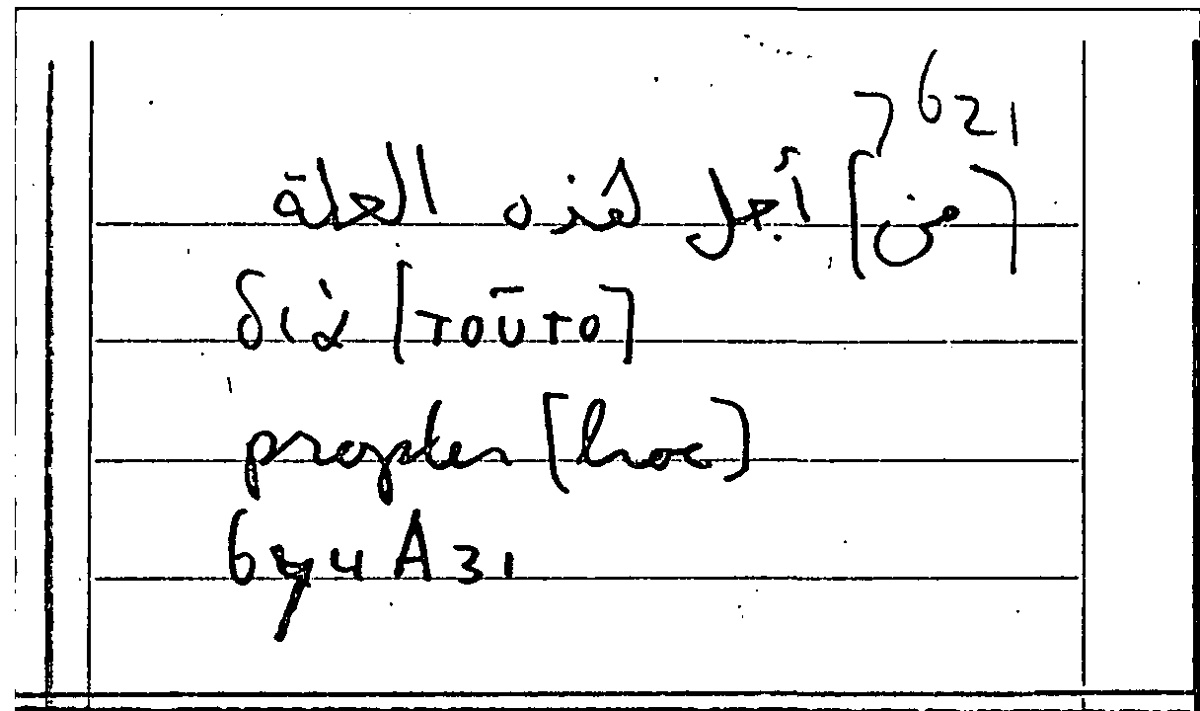 7621
[من] أجل هذه العلة
διὰ [τοῦτο]
propter [hoc]
674 A 31